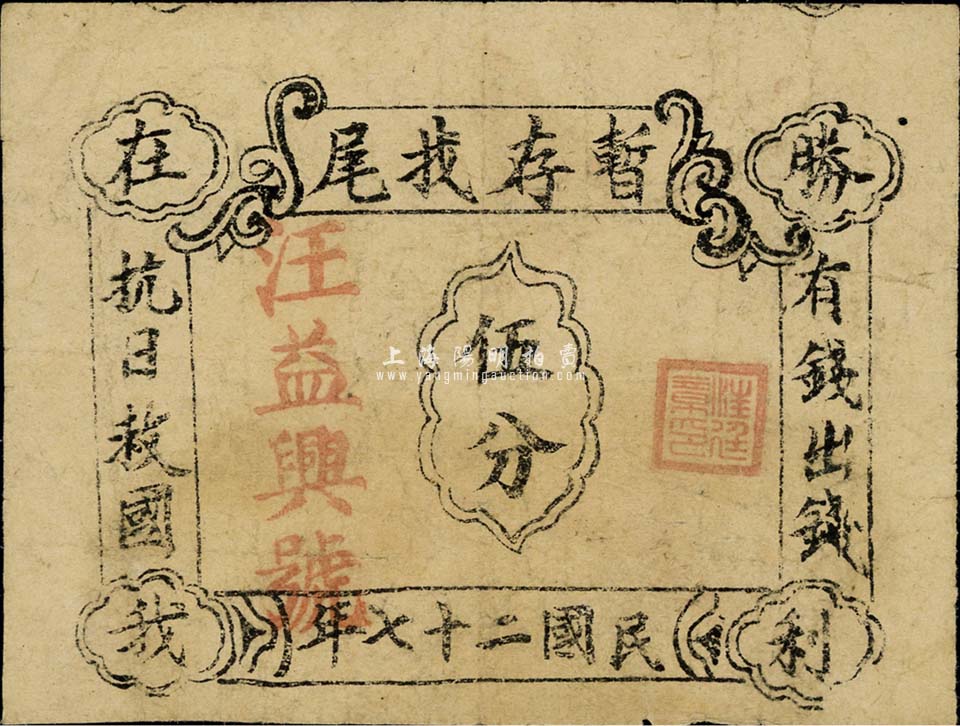 暫存找尾
勝
利
在
我
有錢出錢
抗日救國
伍分
汪益興號
民國二十七年
上海陽明拍賣
www.yangmingauction.com